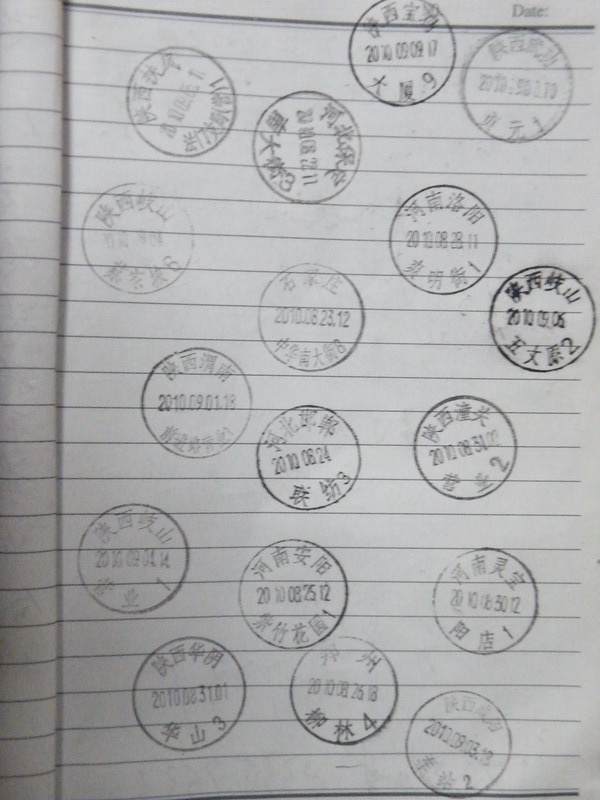 Date:
陕西宝鸡
2010.09.09.17
大厦9
陕西武功
1
陕西扶风
河北
陕西岐山
6
河南洛阳
2010.08.28.11
1
石家庄
2010.08.23.12
中华南大街8
陕西岐山
2010.09.06
五丈原2
陕西渭南
2010.09.01.18
河北邯郸
2010.08.24
联纺3
陕西潼关
2010.08.31.09
营业2
陕西岐山
2010.09.04.14
营业1
河南安阳
2010.08.25.12
紫竹花园1
河南灵宝
2010.08.30.12
阳店1
陕西华阴
2010.08.31.01
华山3
郑州
2010.08.26.18
柳林4
陕西咸阳
2010.09.03.18
车站2